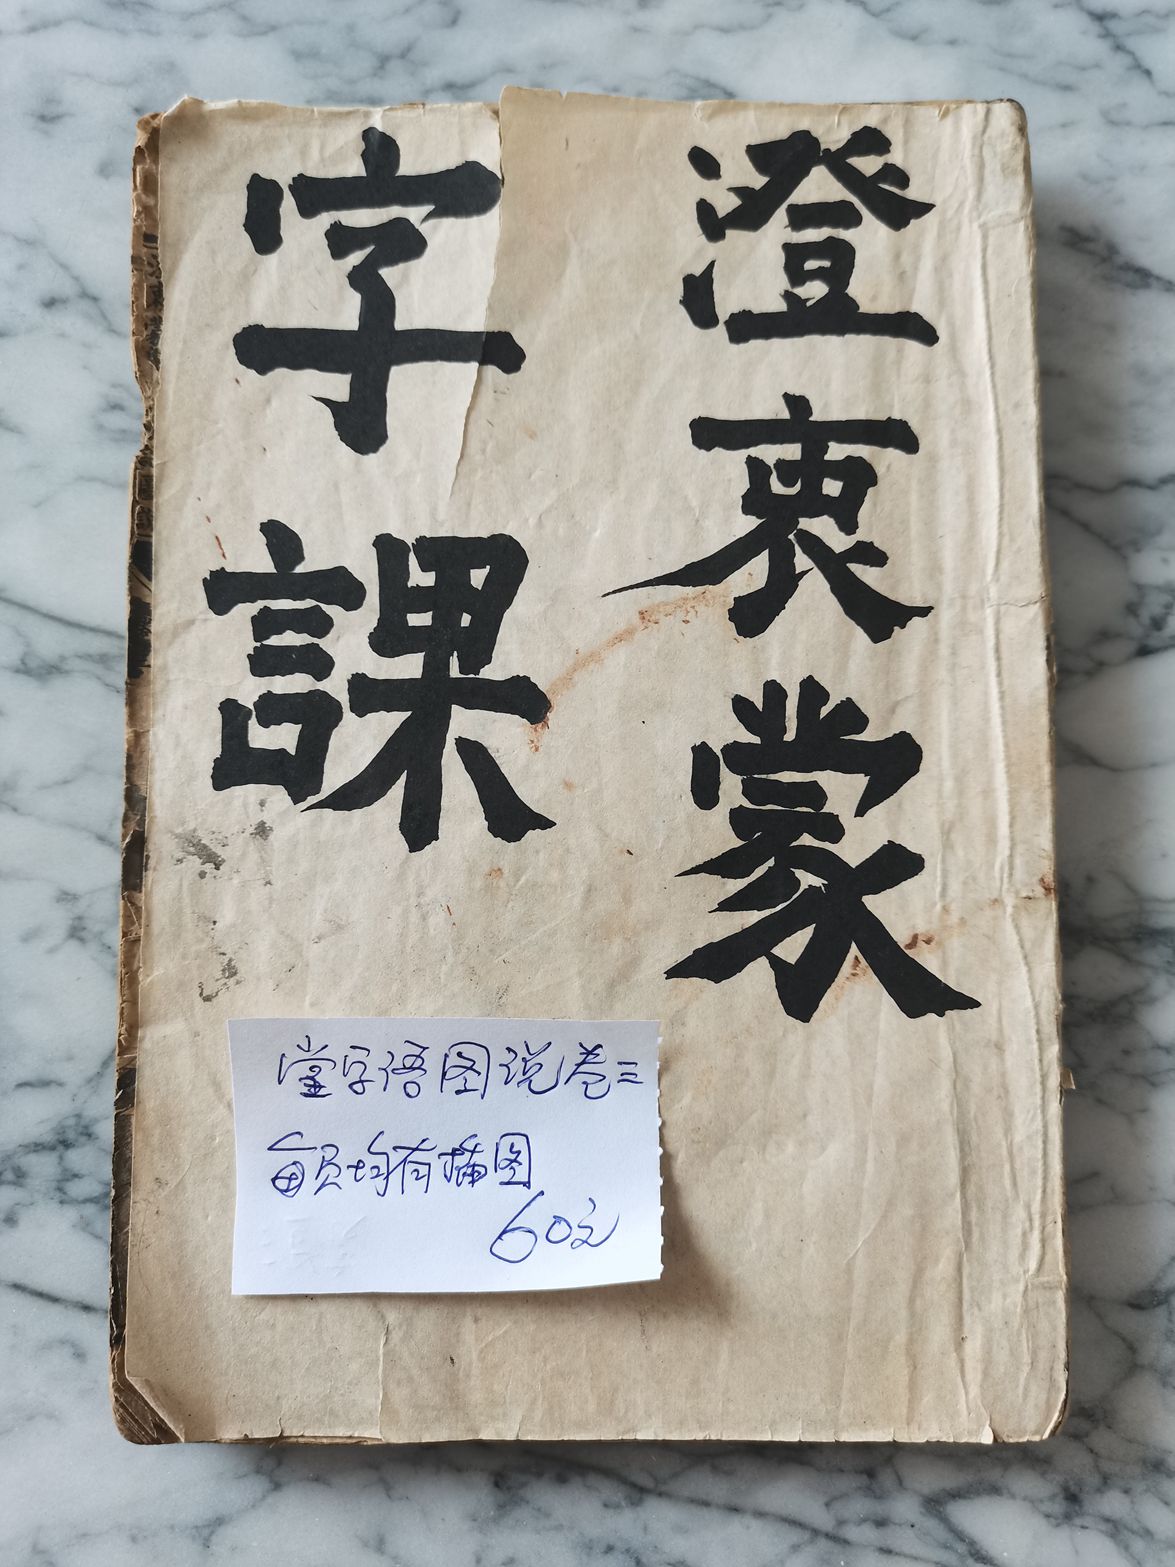 澄衷蒙
字課
堂字语图说卷三
每页均有插图
60元